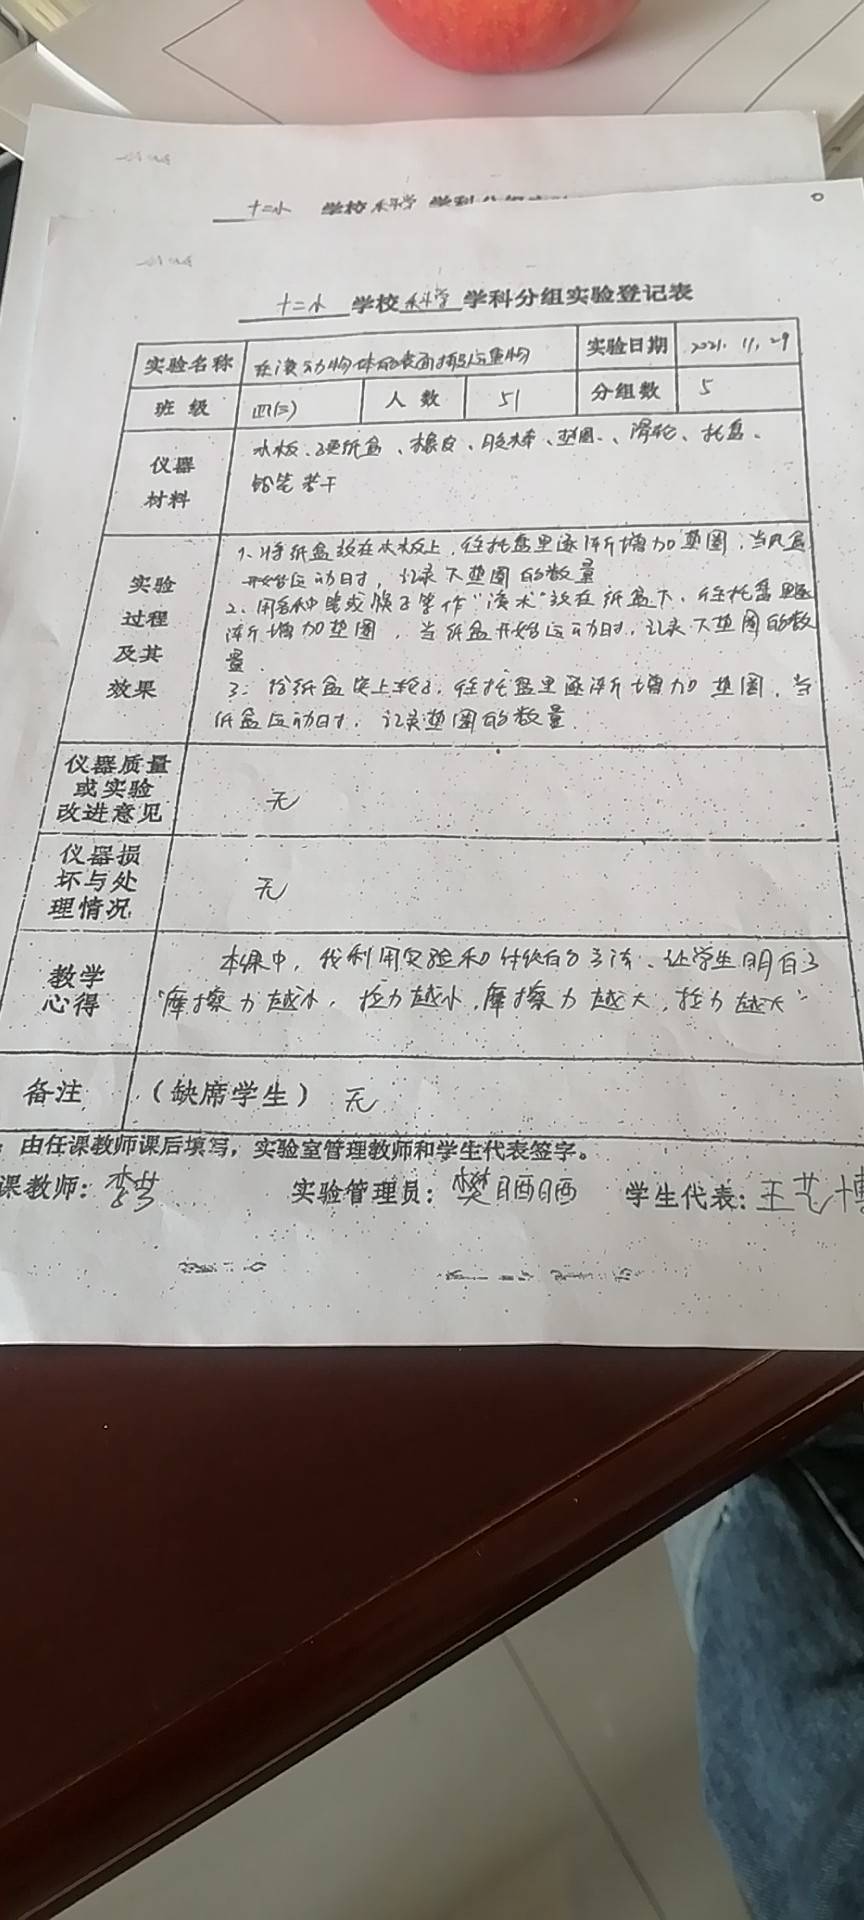 十二小 学校 科学
十二小 学校 科学 学科分组实验登记表
实验名称 在滚动物体的表面搬运重物 实验日期 2021. 11. 29
班 级 四(三) 人 数 51 分组数 5
仪器
材料
木板、硬纸盒、橡皮、胶棒、垫圈、滑轮、托盘、
铅笔若干
实验
过程
及其
效果
1、将纸盒放在木板上,往托盘里逐渐增加垫圈,当纸盒
开始运动时,记录下垫圈的数量
2、用各种笔或筷子等作“滚木”放在纸盒下,往托盘里逐
渐增加垫圈,当纸盒开始运动时,记录下垫圈的数
量.
3、给纸盒安上轮子,往托盘里逐渐增加垫圈,当
纸盒运动时,记录垫圈的数量.
仪器质量
或实验
改进意见
无
仪器损
坏与处
理情况
无
教学
心得
本课中,我利用实验和 方法、让学生明白了
“摩擦力越小,拉力越小,摩擦力越大,拉力越大”
备注 (缺席学生) 无
:由任课教师课后填写,实验室管理教师和学生代表签字。
课教师: 实验管理员:樊晒晒 学生代表:王艺博